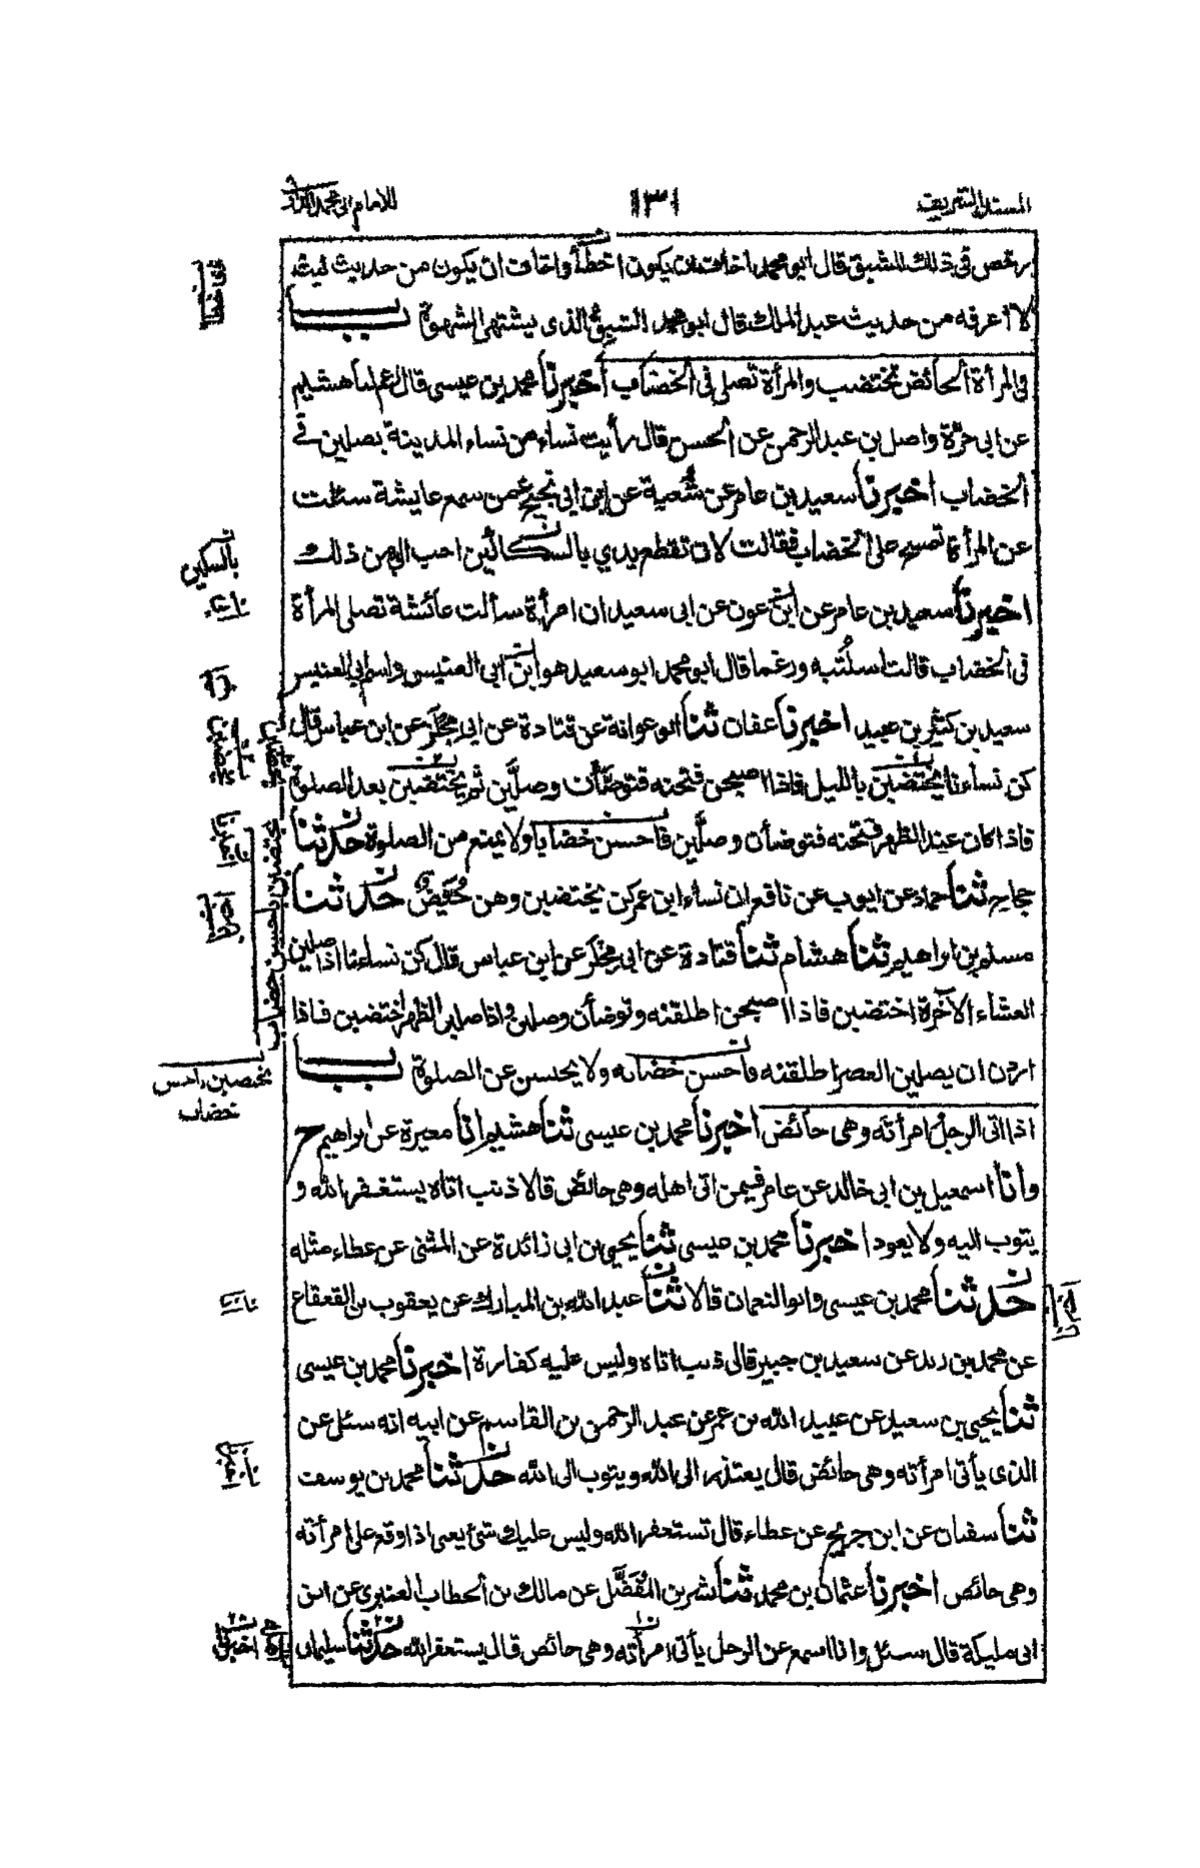 المسند الشريف
١٣١
للامام ابى محمد الدارمى
رخص فى ذلك للشبق قال ابو محمد اخاف ان يكون اخطأ واخاف ان يكون من حديث ليث
لا اعرفه من حديث عبد الملك قال ابو محمد الشبق الذى يشتهى الشهوة باب
فى المرأة الحائض تختضب والمرأة تصلى فى الخضاب اخبرنا محمد بن عيسى قال هشيم
عن ابى حرّة واصل بن عبد الرحمن عن الحسن قال رأيت نساء من نساء المدينة يصلين فى
الخضاب اخبرنا سعيد بن عامر عن شعبة عن ابن ابى نجيح عمن سمع عايشة سئلت
عن المرأة تمسح على الخضاب فقالت لان تقطع يدي بالسكاكين احب الى من ذلك
اخبرنا سعيد بن عامر عن ابن عون عن ابى سعيد ان امرأة سألت عائشة تصلى المرأة
فى الخضاب قالت اسلتيه ورغما قال ابو محمد ابو سعيد هو ابن ابى العنبس واسم ابى العنبس
سعيد بن كثير بن عبيد اخبرنا عفان ثنا ابو عوانة عن قتادة عن ابى مجلز عن ابن عباس قال
كن نساءنا يختضبن بالليل فاذا اصبحن فتحنه فتوضأن وصلّين ثم يختضبن بعد الصلوة
فاذا كان عند الظهر فتحنه فتوضأن وصلّين فاحسن خضابا ولا يمنع من الصلوة حدثنا
حجاج ثنا حماد عن ايوب عن نافع ان نساء ابن عمر كن يختضبن وهن حُيَّض حدثنا
مسلم بن ابراهيم ثنا هشام ثنا قتادة عن ابى مجلز عن ابن عباس قال كن نساءنا اذا صلين
العشاء الآخرة اختضبن فاذا اصبحن اطلقنه وتوضأن وصلين واذا صلين الظهر اختضبن فاذا
اردن ان يصلين العصر اطلقنه فاحسن خضابه ولا يحبسن عن الصلوة باب
اذا اتى الرجل امرأته وهى حائض اخبرنا محمد بن عيسى ثنا هشيم انا مغيرة عن ابراهيم ح
وانا اسمعيل بن ابى خالد عن عامر فيمن اتى اهله وهى حائض قالا ذنب اتاه يستغفر الله و
يتوب اليه ولا يعود اخبرنا محمد بن عيسى ثنا يحيى بن ابى زائدة عن المثنى عن عطاء مثله
حدثنا محمد بن عيسى وابو النعمان قالا ثنا عبد الله بن المبارك عن يعقوب بن القعقاع
عن محمد بن زيد عن سعيد بن جبير قال ذنب اتاه وليس عليه كفارة اخبرنا محمد بن عيسى
ثنا يحيى بن سعيد عن عبيد الله بن عمر عن عبد الرحمن بن القاسم عن ابيه انه سئل عن
الذى يأتى امرأته وهى حائض قال يعتذر الى الله ويتوب الى الله حدثنا محمد بن يوسف
ثنا سفيان عن ابن جريج عن عطاء قال تستغفر الله وليس عليك شئ يعنى اذا وقع على امرأته
وهى حائض اخبرنا عثمان بن محمد ثنا بشر بن المُفَضَّل عن مالك بن الخطاب العنبرى عن ابن
ابى مليكة قال سئل وانا اسمع عن الرجل يأتى امرأته وهى حائض قال يستغفر الله حدثنا سليمان
بالسكين
يختضبن باحسن
خضاب